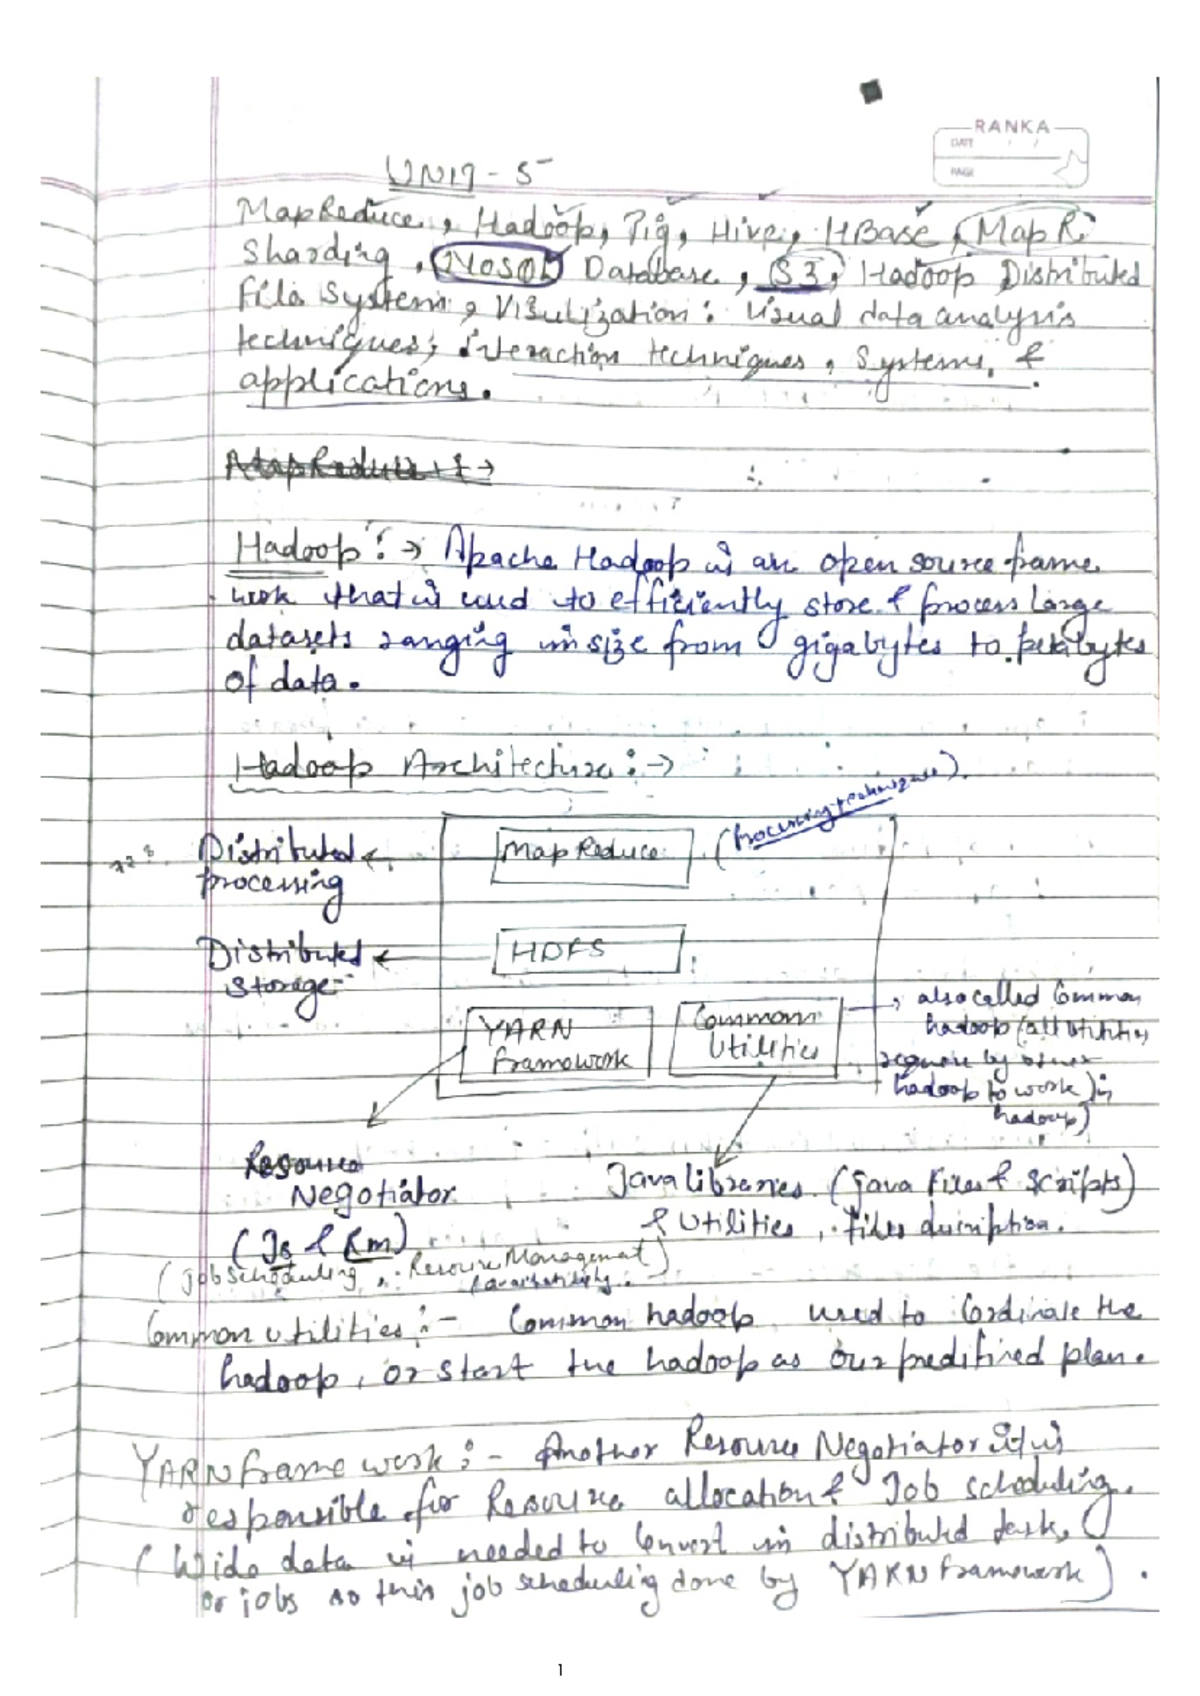 RANKA
DATE
PAGE
UNIT - 5
MapReduce, Hadoop, Pig, Hive, HBase, MapR
Sharding, NoSQL Database, S3, Hadoop Distributed
File Systems, Visulization: Visual data analysis
techniques, interaction techniques, Systems, &
applications.
MapReduce :→
Hadoop :→ Apache Hadoop is an open source frame
work that is used to efficiently store & process large
datasets ranging in size from gigabytes to petabytes
of data.
Hadoop Architecture :→
(Processing techniques).
Distributed
processing
MapReduce
Distributed
Storage
HDFS
YARN
framework
Common
Utilities
also called Common
hadoop (all utilities
require by other
hadoop to work) in
hadoop)
Resource
Negotiator
(Js & Rm)
(job scheduling, Resource Management)
Java libraries (java Files & Scripts)
& Utilities, files description.
Common utilities :- Common hadoop used to Cordinate the
hadoop, or start the hadoop as our predifined plan.
YARN frame work :- Another Resource Negotiator it is
responsible for Resource allocation & Job scheduling.
data is needed to Convert in distributed task,
or jobs so this job scheduling done by YARN framework).
1